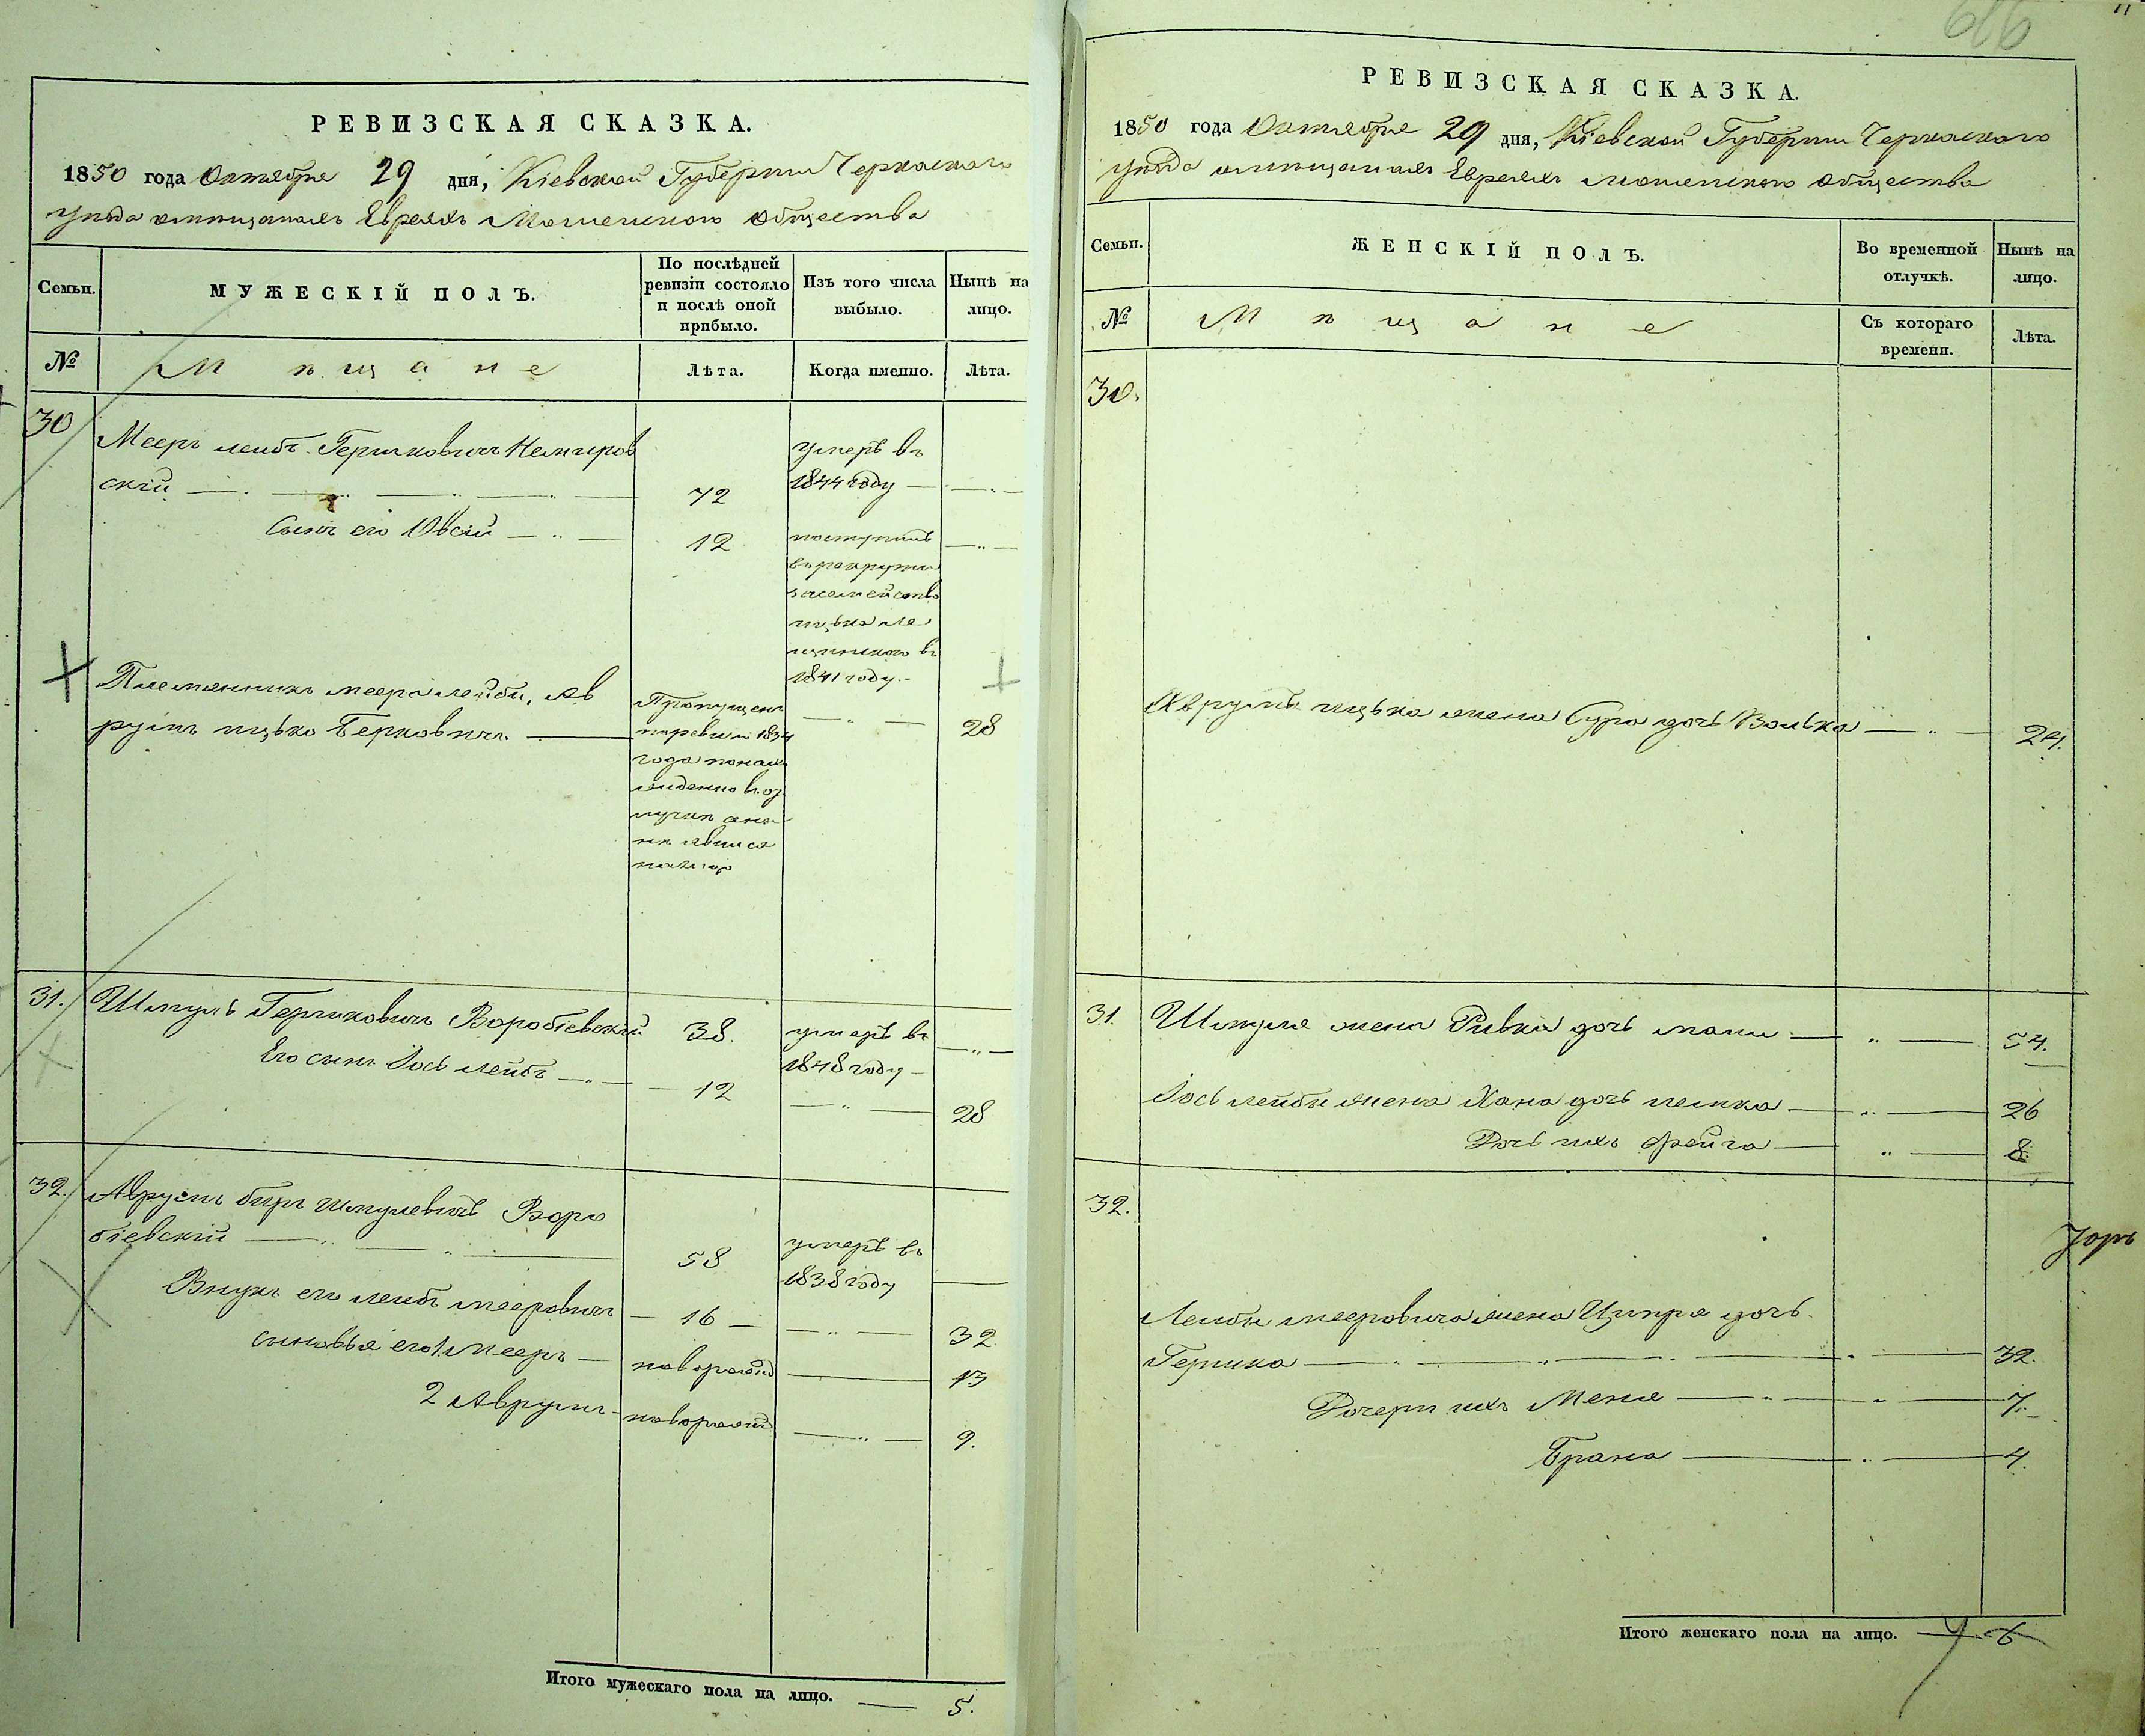 РЕВИЗСКАЯ СКАЗКА.
1850 года Октября 29 дня, Кіевской Губерніи Черкаского
уѣзда о мѣщанахъ Евреяхъ Мошенского общества
Семьи.
МУЖЕСКІЙ ПОЛЪ.
По послѣдней
ревизіи состояло
и послѣ оной
прибыло.
Изъ того числа
выбыло.
Нынѣ на
лицо.
№
Мѣщане
Лѣта.
Когда именно.
Лѣта.
30
Мееръ лейбъ Гершковичъ Немиров
скій
72
умеръ въ
1844 году
Сынъ его Овсій
12
поступилъ
въ рекруты
за семейство
ицька
въ
1841 году
Племянникъ меера лейбы, Ав
румъ ицько Берковичъ
Пропущенъ
по ревизіи 1834
года по нахо
жденію въ от
лучкѣ а ны
нѣ явился
28
31.
Шмуль Гершковичъ Воробіевскій
38.
умеръ въ
1848 году
Его сынъ Іось Лейбъ
12
28
32.
Аврумъ беръ Шмулевичъ Воро
біевскій
58
умеръ въ
1838 году
Внукъ его лейбъ мееровичъ
16
32
сыновья его 1. Мееръ
новорожд
13
2 Аврумъ
новорожд
9.
Итого мужескаго пола на лицо. 5.
616
11
РЕВИЗСКАЯ СКАЗКА.
1850 года Октября 29 дня, Кіевской Губерніи Черкаского
уѣзда о мѣщанахъ Евреяхъ Мошенского общества
Семьи.
ЖЕНСКІЙ ПОЛЪ.
Во временной
отлучкѣ.
Нынѣ на
лицо.
№
Мѣщане
Съ котораго
времени.
Лѣта.
30.
Аврумъ ицька жена Сура дочь Волька
24.
31.
Шмуля жена Ривка дочь
54.
Іось лейбы жена Хана дочь
26
Дочь ихъ Фейга
8.
32.
Лейбы мееровича жена Ципра дочь
Гершка
32.
Дочери ихъ Меня
7.
Брана
4.
Итого женскаго пола на лицо. 6